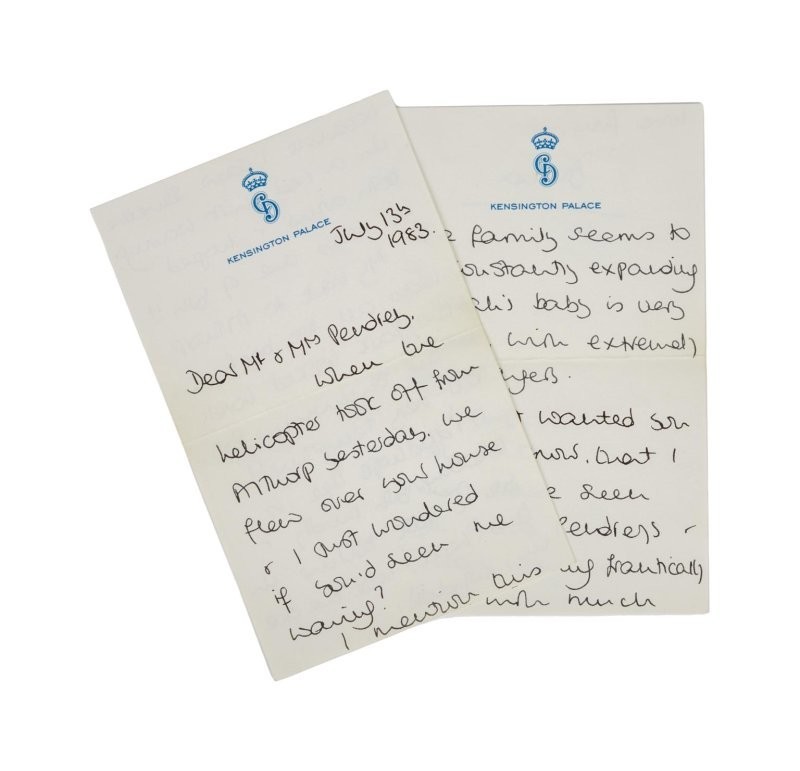 KENSINGTON PALACE
July 13th
1983.
Dear Mr & Mrs Pendrey,
When the
helicopter took off from
Althorp yesterday, we
flew over your house
& I just wondered
if you'd seen me
waving?
I mention this
KENSINGTON PALACE
family seems to
constantly expanding
baby is very
with extremely
wanted you
know, that I
seen
Pendreys &
frantically
with much